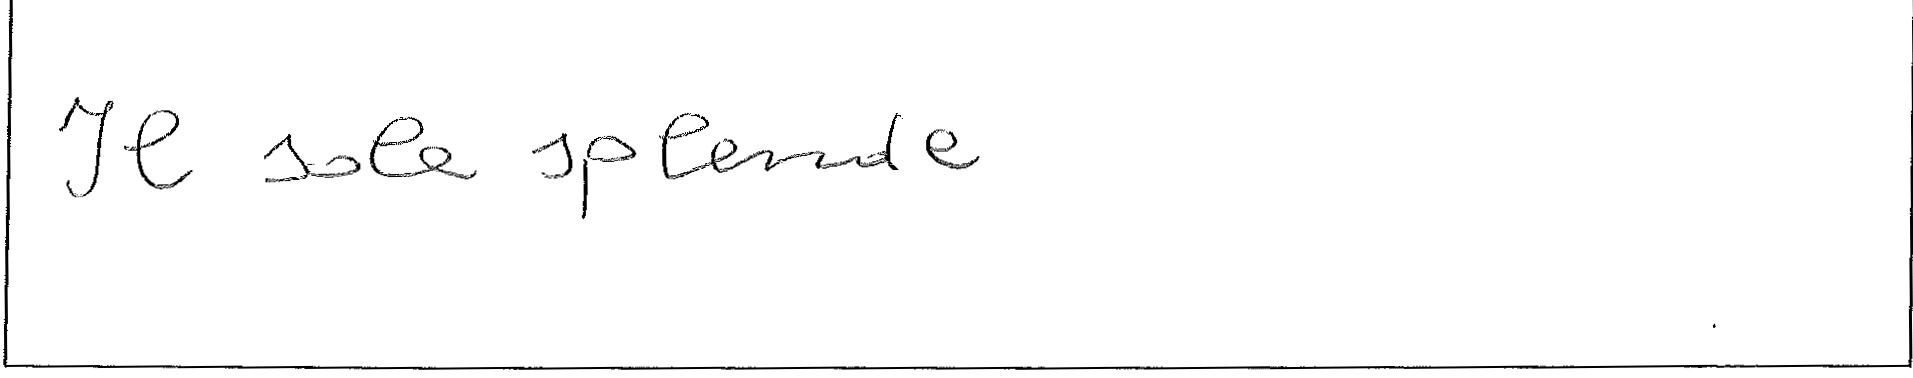 Il sole splende